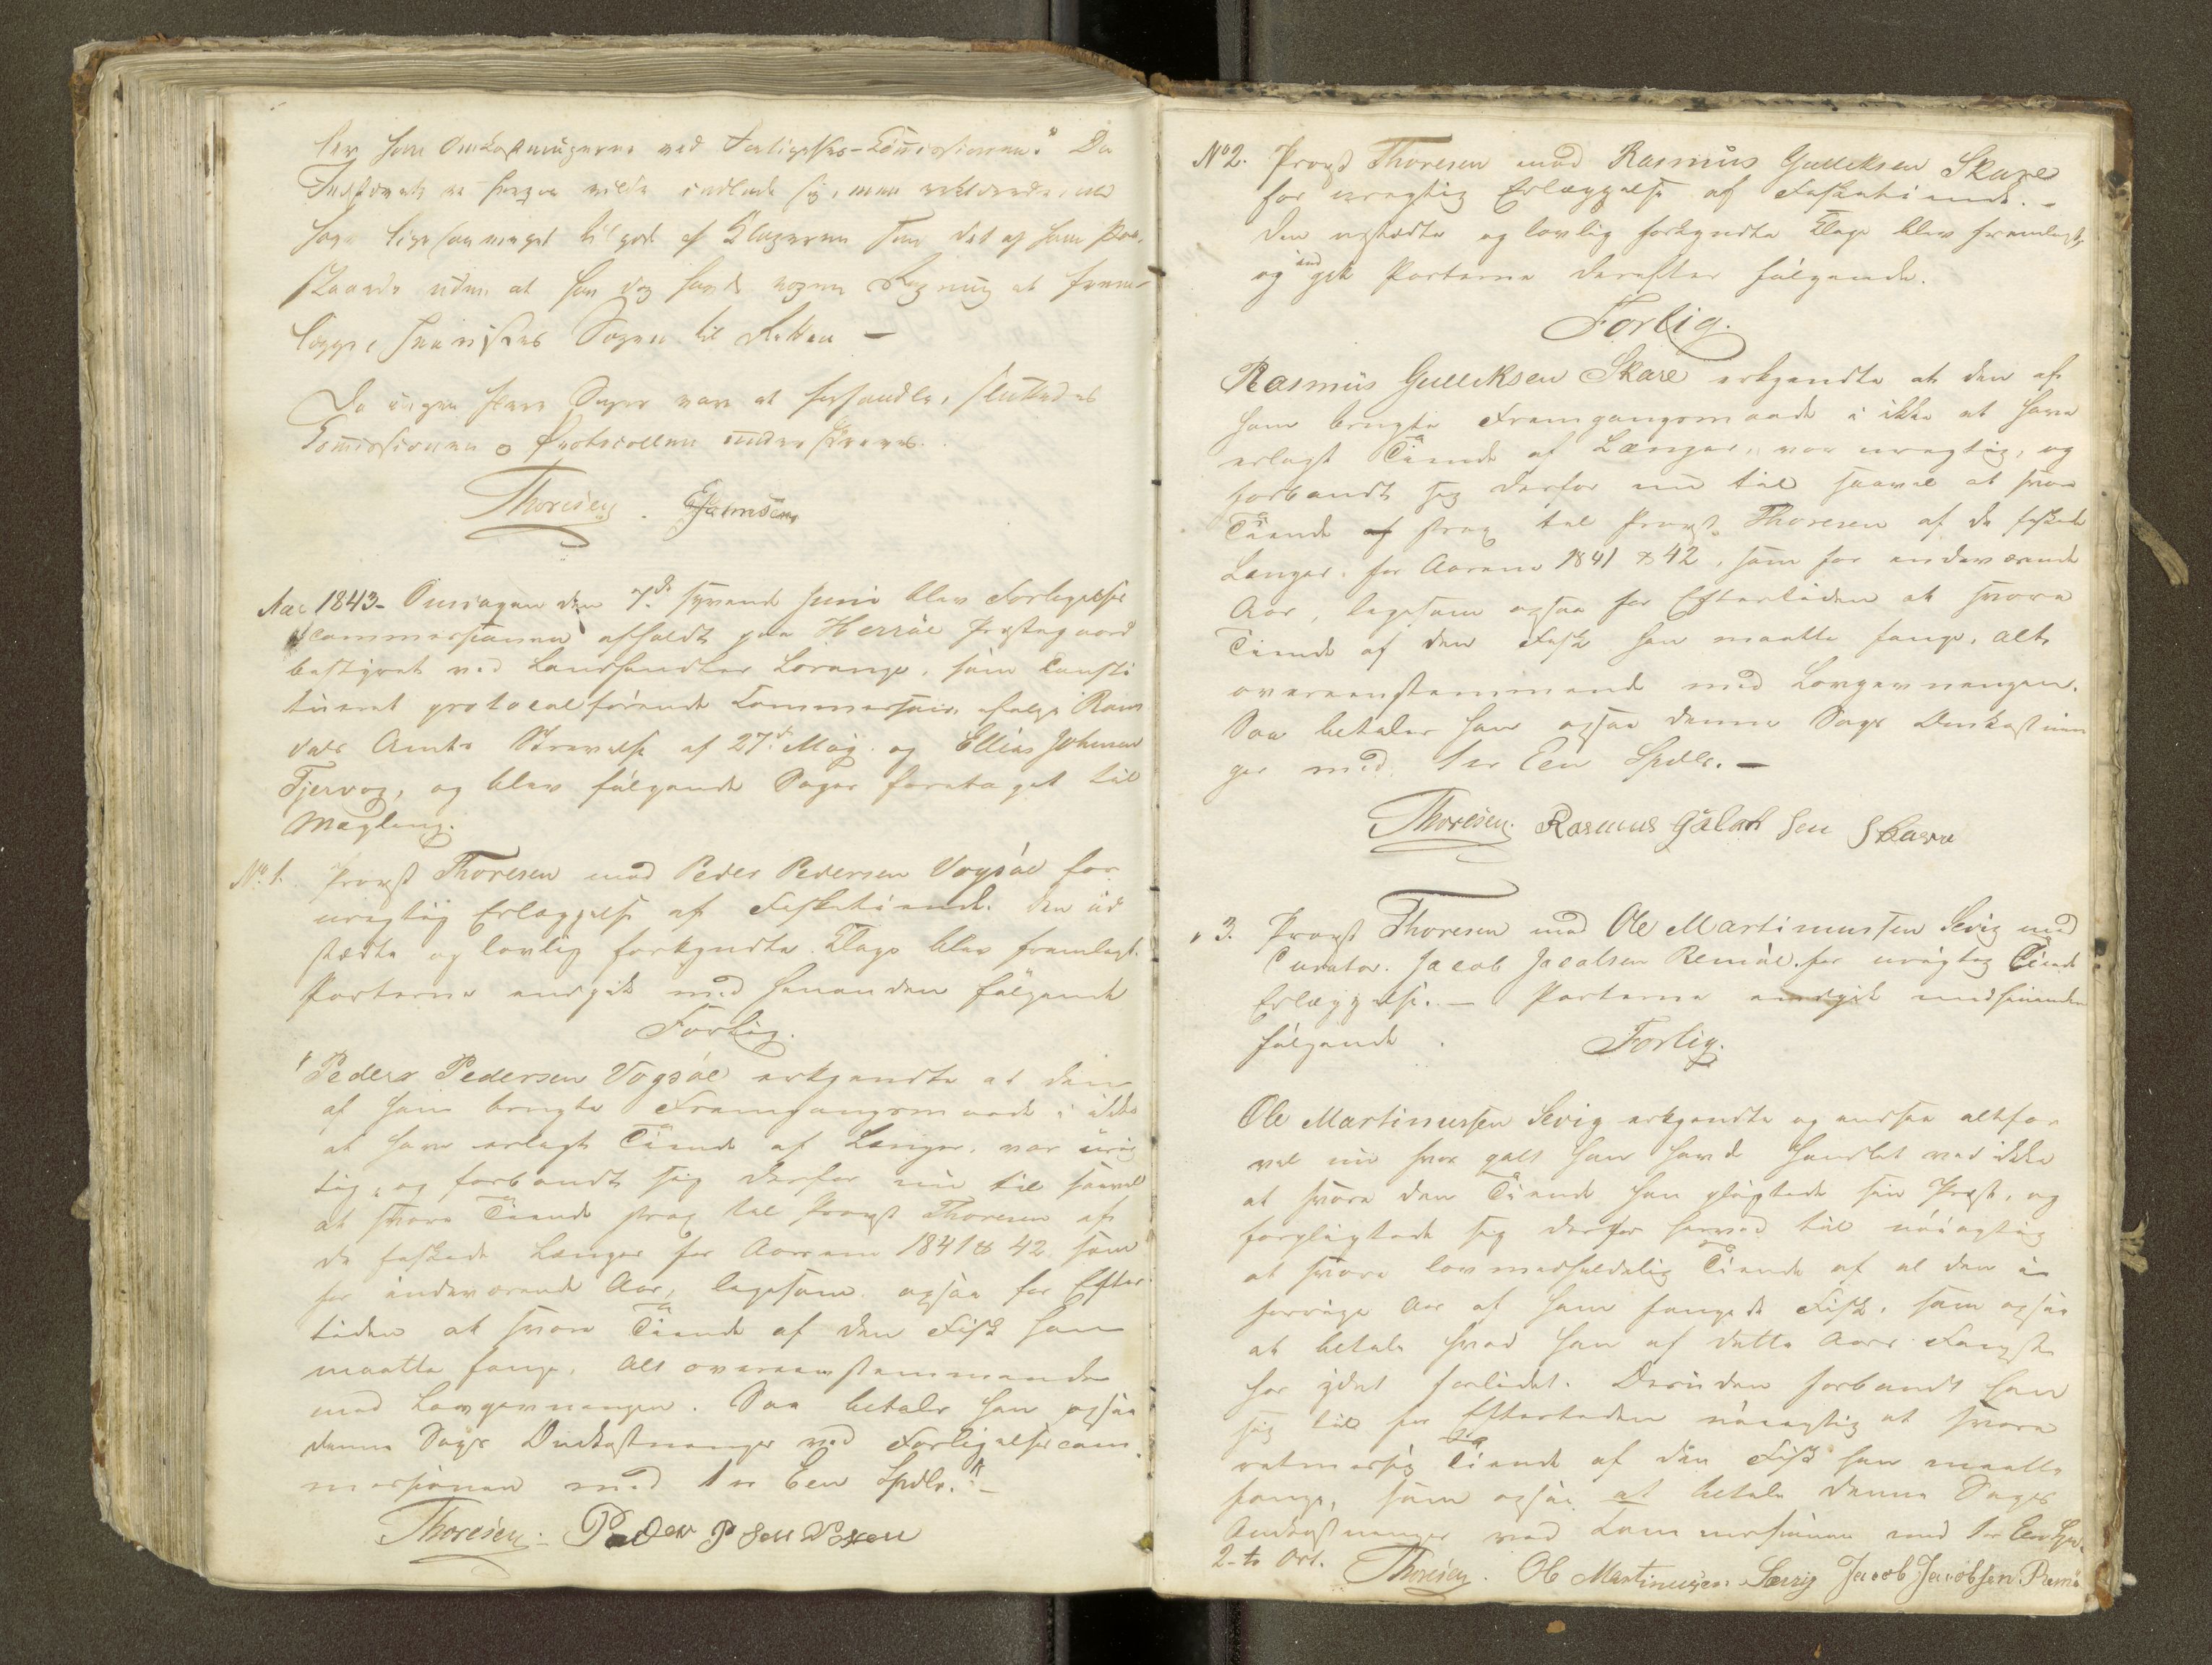 ler som Omkostningerne ved Forligelses-Comissionen." Da
Indklagede ei herpaa vilde indlade sig, men erklærede, at
have ligesaameget tilgode af Klageren som det af ham paa-
staaede uden at han dog havde nogen Regning at frem-
lægge, henvistes Sagen til Retten –
Da ingen flere Sager vare at forhandle, sluttedes
Comissionen og Protocollen underskreves.
Thoresen. EJohnsen
Aar 1843- Onsdagen den 7de syvende Juni blev Forligelses
commissionen afholdt paa Herröe Præstegaard
bestyret ved Landhandler Lorange, som consti
tueret protocolförende Commissair, ifölge Roms
dals Amts Skrivelse af 27de Maj og Ellias Johnsen
Tjervog, og blev fölgende Sager foretaget til
Mægling.
No 1. Provst Thoresen mod Peder Pedersen Vogsöe for
urigtig Erlæggelse af Fisketiende. Den ud
stædte og lovlig forkyndte Klage blev fremlagt.
Parterne indgik med hinanden fölgende
Forlig.
"Peder Pedersen Vogsöe erkjendte at den
af ham brugte Fremgangsmaade i ikke
at have erlagt Tiende af Længer, var urig
tig, og forbandt sig derfor nu til saavel
at svare Tiende strax til Provst Thoresen af
de fiskede Længer for Aarene 1841 & 42 som
for indeværende Aar, ligesom ogsaa for Efter
tiden at svare Tiende af den Fisk han
maatte fange, Alt overeenstemmende
med Lovgivningen. Saa betaler han ogsaa
denne Sags Omkostninger ved Forligelsescom
missionen med 1 er Een Spdlr." –
Thoresen. Peder P Sen
No 2. Provst Thoresen mod Rasmus Gulleksen Skare
for urigtig Erlæggelse af Fisketiende. –
Den udstædte og lovlig forkyndte Klage blev fremlagt,
og indgik Parterne derefter fölgende.
Forlig.
Rasmus Gulleksen Skare erkjendte at den af
ham brugte Fremgangsmaade i ikke at have
erlagt Tiende af Længer, var urigtig, og
forbandt sig derfor nu til saavel at svare
Tiende af strax til Provst Thoresen af de fiskede
Længer for Aarene 1841 & 42, som for indeværende
Aar, ligesom ogsaa for Eftertiden at svare
Tiende af den Fisk han maatte fange, alt
overeenstemmende med Lovgivningen.
Saa betaler han ogsaa denne Sags Omkostnin
ger med 1 er Een Spdlr. –
Thoresen. Rasmus Sen Skare
" 3. Provst Thoresen mod Ole Martinussen Sevig med
Curator Jacob Jacobsen Remöe for urigtig Tiende
Erlæggelse. – Parterne indgik med hinanden
fölgende. Forlig.
Ole Martinussen Sevig erkjendte og indsaa altfor
vel nu hvor galt han havde handlet ved ikke
at svare den Tiende han pligtede sin Præst, og
forpligtede sig derfor herved til nöiagtig
at svare lovmedholdelig Tiende af al den i
forrige Aar af ham fangede Fisk, som ogsaa
at betale hvad han af dette Aars Fangst
har ydet forlidet. Desuden forbandt han
sig til for Eftertiden nöiagtig at svare
retmæssig Tiende af den Fisk han maatte
fange, som ogsaa at betale denne Sags
Omkostninger ved Commissionen med 1 er Een Spd.
2- to Ort. Thoresen. Ole Martinussen Sævig Jacob Jacobsen Remö